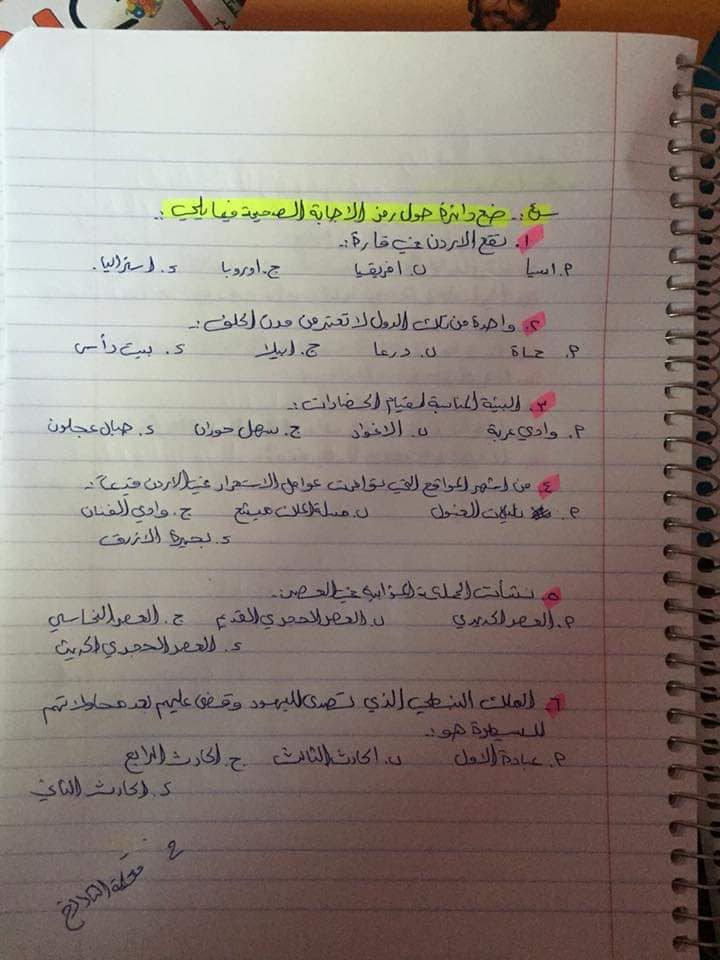 س٤:. ضع دائرة حول رمز الاجابة الصحيحة فيما يلي:.
١. تقع الاردن في قارة:.
أ. اسيا ب. افريقيا ج. اوروبا د. استراليا.
٢. واحدة من تلك الدول لا تعتبر من مدن الحلف:.
أ. حماة ب. درعا ج. ابيلا د. بيت رأس
٣. البيئة المناسبة لقيام الحضارات:.
أ. وادي عربة ب. الاغوار ج. سهل حوران د. جبال عجلون
٤. من اشهر المواقع التي توافرت عوامل الاستقرار في الاردن قديماً:.
أ. تليلات الغسول ب. مسلة الملك ميشع ج. وادي الفينان
د. بحيرة الازرق
٥. نشأت المملكة المؤابية في العصر:.
أ. العصر الحديدي ب. العصر الحجري القديم ج. العصر النحاسي
د. العصر الحجري الحديث
٦. الملك النبطي الذي تصدى لليهود وقضى عليهم بعد محاولاتهم
للسيطرة هو:.
أ. عبادة الاول ب. الحارث الثالث ج. الحارث الرابع
د. الحارث الثاني